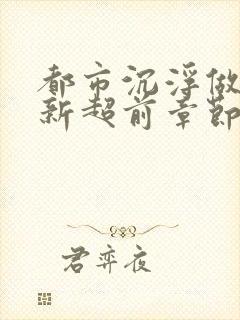 都市沉浮做
新超前章節
君弈夜